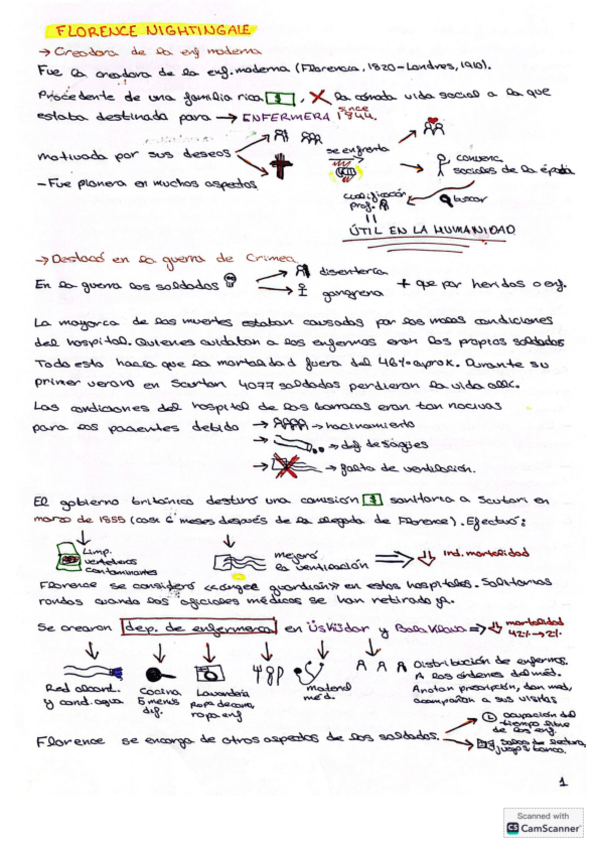 FLORENCE NIGHTINGALE
→ Creadora de la enf moderna
Fue la creadora de la enf. moderna (Florencia, 1820 – Londres, 1910).
Procedente de una familia rica $ , X la cómoda vida social a la que
estaba destinada para → ENFERMERA since 1844.
motivada por sus deseos
se enfrenta
convenc. sociales de la época
– Fue pionera en muchos aspectos
cualificación prof.
buscar
ÚTIL EN LA HUMANIDAD
→ Destacó en la guerra de Crimea
En la guerra los soldados
disentería
gangrena
+ que por heridas o enf.
La mayoría de las muertes estaban causadas por las malas condiciones
del hospital. Quienes cuidaban a los enfermos eran los propios soldados
Todo esto hacía que la mortalidad fuera del 46% aprox. Durante su
primer verano en Scutari 4077 soldados perdieron la vida allí.
Las condiciones del hospital de las barracas eran tan nocivas
para los pacientes debido → hacinamiento
→ def de sagües
→ falta de ventilación.
El gobierno británico destinó una comisión $ sanitaria a Scutari en
marzo de 1855 (casi 6 meses después de la llegada de Florence). Efectuó:
Limp. vertederos contaminantes
mejoró la ventilación
⇒ ↓ Ind. mortalidad
Florence se consideró <<ángel guardián>> en estos hospitales. Solitarias
rondas cuando los oficiales médicos se han retirado ya.
Se crearon dep. de enfermera en Üsküdar y Balaklava ⇒ ↓ mortalidad 42% → 2%
Red alcant. y cond. agua
Cocina 5 menús dif.
Lavandería Ropa de cama, ropa enf
material méd.
Distribución de enfermos.
A las órdenes del méd.
Anotan prescripción, dan med,
acompañan a sus visitas
Florence se encarga de otros aspectos de los soldados.
ocupación del tiempo libre de los enf.
Salas de lectura, juegos y banco.
1
Scanned with
CS CamScanner